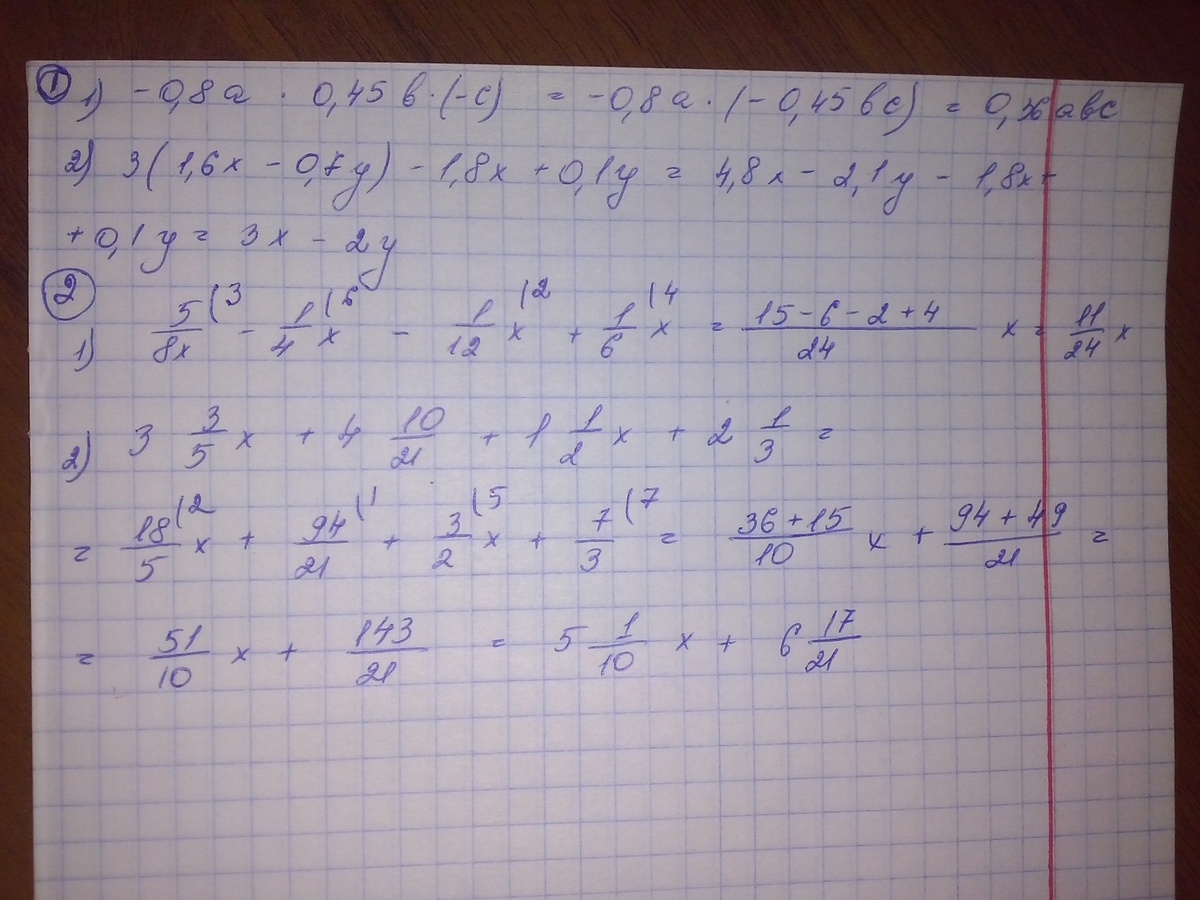 ① 1) -0,8a · 0,45в · (-c) = -0,8a · (-0,45вc) = 0,36aвc
2) 3(1,6x - 0,7y) - 1,8x + 0,1y = 4,8x - 2,1y - 1,8x +
+ 0,1y = 3x - 2y
②
1) 5/8x (3 - 1/4 x (6 - 1/12 x (2 + 1/6 x (4 = (15-6-2+4)/24 x = 11/24 x
2) 3 3/5 x + 4 10/21 + 1 1/2 x + 2 1/3 =
= 18/5 (2 x + 94/21 (1 + 3/2 (5 x + 7/3 (7 = (36+15)/10 x + (94+49)/21 =
= 51/10 x + 143/21 = 5 1/10 x + 6 17/21